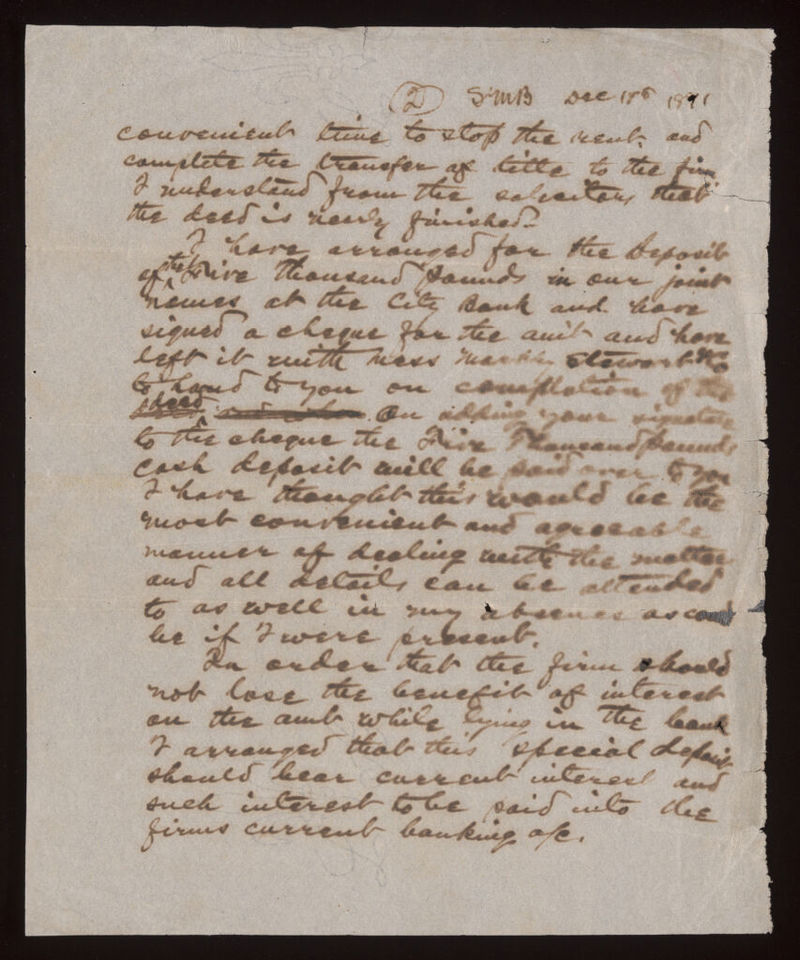 (2) SMB Dec 1871
convenient time to stop the rent. and
complete the transfer of title to the firm
I understand from the solicitors that
the deed is nearly finished.
I have arranged for the Deposit
of the Five thousand pounds in our joint
names at the City Bank and have
signed a cheque for the amt and have
left it with Mess Stewart
to hand to you on completion of the
deed. On adding your signature
to the cheque the Five Thousand pounds
cash deposit will be paid over to you
I have thought this would be the
most convenient and agreeable
manner of dealing with the matter
and all details can be attended
to as well in my absence as could
be if I were present.
In order that the firm should
not lose the benefit of interest
on the amt while lying in the bank
I arranged that this special deposit
should bear current interest and
such interest to be paid into the
firms current banking a/c.